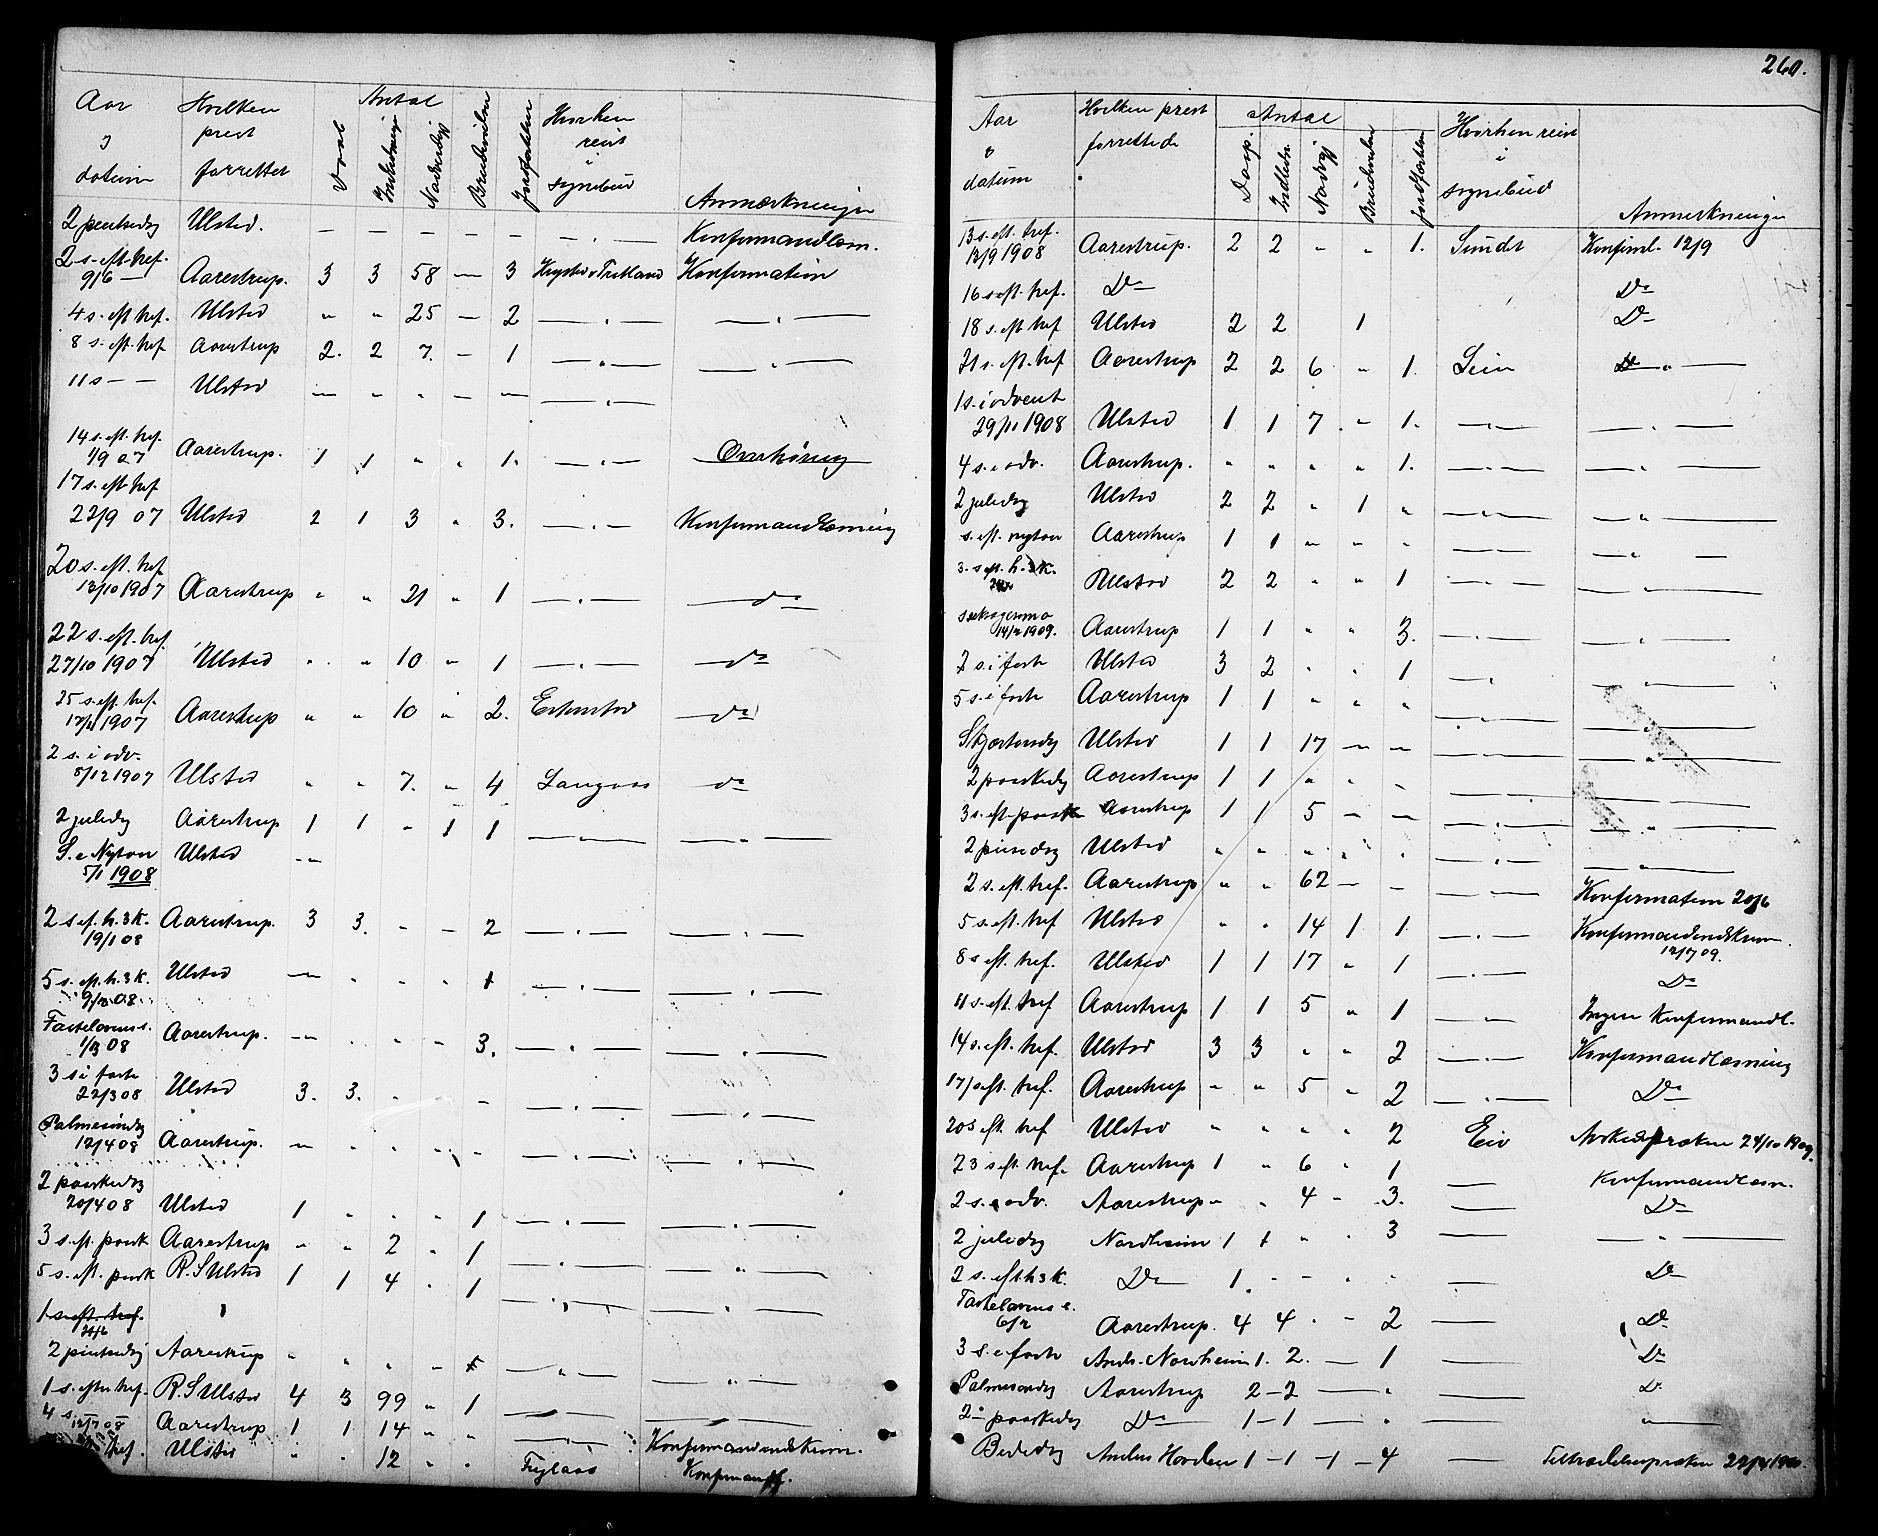 Aar & datum Hvilken prest forrettet Antal Daab Nadverdgj. Hvorhen reist i sygebud Anmærkninger
2 pintsedag Ulsted. — — — — — — . — Konfirmandlæsn.
2 s. eft. tref. 9/6 — Aarestrup. 3 3 58 — 3 Konfirmation
4 s. eft. tref. Ulsted " " 25 — 2 — " — — " —
8 s. eft. tref Aarestrup 2. 2 7. — 1 — " — — " —
11 s — — Ulsted — " " " — — " —
14 s. eft. tref. 1/9 07 Aarestrup. 1 1 " " 1. — " — Overhøring
17 s. eft. tref 22/9 07 Ulsted 2 1 3 " 3. — " — Konfirmandlæsning
20 s. eft. tref 13/10 1907 Aarestrup " " 21 " 1 — " — do
22 s. eft. tref. 27/10 1907 Ulsted " " 10 " 1 — " — do
25 s. eft. tref. 1907 Aarestrup " " 10 " 2. do
2 s. i adv. 8/12 1907 Ulsted " " 7. " 4 Langaas do
2 juledag Aarestrup 1 1 " 1 1 — " — — " —
S. e Nytaar 5/1 1908 Ulsted — "
2 s ef. h. 3 K. 19/1 08 Aarestrup. 3 3. " — 2 — " — — " —
5 s. eft. h. 3 K. 08. Ulsted — " " " 1 — " — — " —
Fastelavns s. 1/3 08 Aarestrup. — " " " — 3. — " — — " —
3 s i faste 22/3 08 Ulsted 3. 3. " — — " — — " —
Palmesøndag 12/4 08 Aarestrup. — " " " " — " — — " —
2 paaskedag 20/4 08 Ulsted 1 " " " 1 — " — — " —
3 s. eft. paask Aarestrup " " 2 " 1 — " — — " —
5 s. eft. paask R. S Ulsted 1 1 4 " 1 — " — — " —
1 s. eft. tref.
2 pintsedag Aarestrup " " " " — " — — " —
1 s. efter tref. R. S Ulsted 4 3 99 " 1 — " —
4 s 12/7 08 Aarestrup 1 1 14 " " — " — Konfirmandindskrivn.
tref. Ulsted " " 12 " " Konfirmandl.
260.
Aar & datum Hvilken prest forrettede Antal Daap. Indleds. Nadvgj Brudevielser Jordfæstelser Hvorhen reist i sygebud Anmerkninger
13 s. eft. tref. 13/9 1908 Aarestrup. 2 2 " " 1. Sundet Konfirml. 12/9
16 s eft. tref. Do Do
18 s. eft tref Ulsted 2 2 1 Do
21 s. eft. tref Aarestrup 2 2 6 " 1. — " —
1 s. i advent 29/11 1908 Ulsted 1 1 7 " 1. — " — — " —
4 s. i adv. Aarestrup. " " " " 1. — " — — " —
2 juledag Ulsted 2 2 " 1 " — " — — " —
s. eft. nytaar Aarestrup 1 1 " " " — " — — " —
3. s eft. h. 3 K. Ulsted 2 2 " " 1 — " — — " —
14/2 1909. Aarestrup 1 1 " " 3. — " — — " —
2 s. i faste Ulsted 3 2 " " 1 — " — — " —
5 s. i faste Aarestrup 1 1 " " " — " — — " —
Skjærtorsdag Ulsted 1 1 17 — — — " — — " —
2 paaskedag Aarestrup 1 1 " " " — " — — " —
3 s. eft. paaske Aarestrup 1 1 5 — — — " — — " —
2 pinsedag Ulsted " " " " " — " — — " —
2 s. eft. tref. Aarestrup " " 62 — — — " — Konfirmation 20/6
5 s. eft. tref Ulsted " " 14 1 1. — " — Konfirmandindskrivn. 12/7 09.
8 s eft. tref. Ulsted 1 1 17 " 1 — " — Do
11 s. eft. tref Aarestrup 1 1 5 " 1 — " — Ingen Konfirmandl.
14 s. eft. tref. Ulsted 3 3 " " 2 — " — Konfirmandlæsning
17 s eft. tref. Aarestrup " " 5 " 2 — " — Do
20 s eft. tref Ulsted " " " " 2 Eid Avskedspræken 24/10 1909.
23 s eft. tref. Aarestrup 1 " 6 " 1 — Konfirmandlæsn.
2 s. i adv. Aarestrup " " 4 " 3. — Do
2 juledag Nordheim 1 1 " " 3 — — " —
2 s. eft h 3 K. Do 1. " " " " — Do
Fastelavns s. 6/2 Aarestrup. 4 4 " — 2 — Do
3 s. i faste Nordheim 1. 2. — 1 — Do
Palmesøndag Aarestrup 2 – 2 — " — Do
2 paaskedag Do 1 – 1 — " — — " —
Bededag 1 – 1 – 1 – 4 — Tiltrædelsespræken